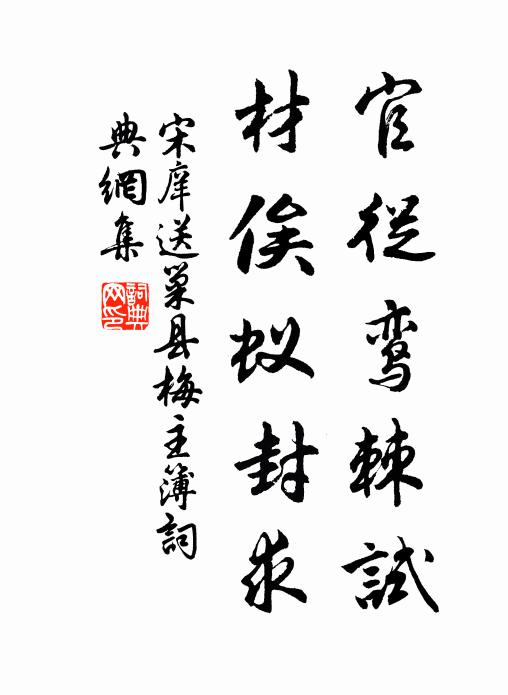 官從鸾棘試
材俟蚁封求
宋庠送巢县梅主簿詞
典網集
詞典网印